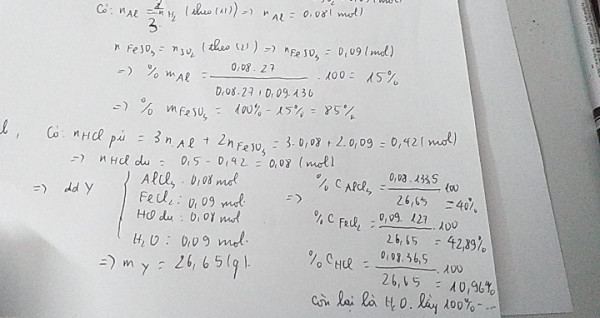 Có: nAl = 2/3 nH2 (theo (1)) => nAl = 0,08 (mol)
nFeSO3 = nSO2 (theo (2)) => nFeSO3 = 0,09 (mol)
=> % mAl = 0,08.27 / 0,08.27+0,09.136 .100 = 15%
=> % mFeSO3 = 100% - 15% = 85%
b, Có: nHCl pư = 3nAl + 2nFeSO3 = 3.0,08 + 2.0,09 = 0,42 (mol)
=> nHCl dư = 0,5 - 0,42 = 0,08 (mol)
=> dd Y { AlCl3: 0,08 mol
FeCl2: 0,09 mol
HCl dư: 0,08 mol
H2O: 0,09 mol.
=> mY = 26,65 (g).
=> % CAlCl3 = 0,08.133,5 / 26,65 .100 = 40%
% CFeCl2 = 0,09.127 / 26,65 .100 = 42,89%
% CHCl = 0,08.36,5 / 26,65 .100 = 10,96%
Còn lại là H2O. lấy 100% - ...